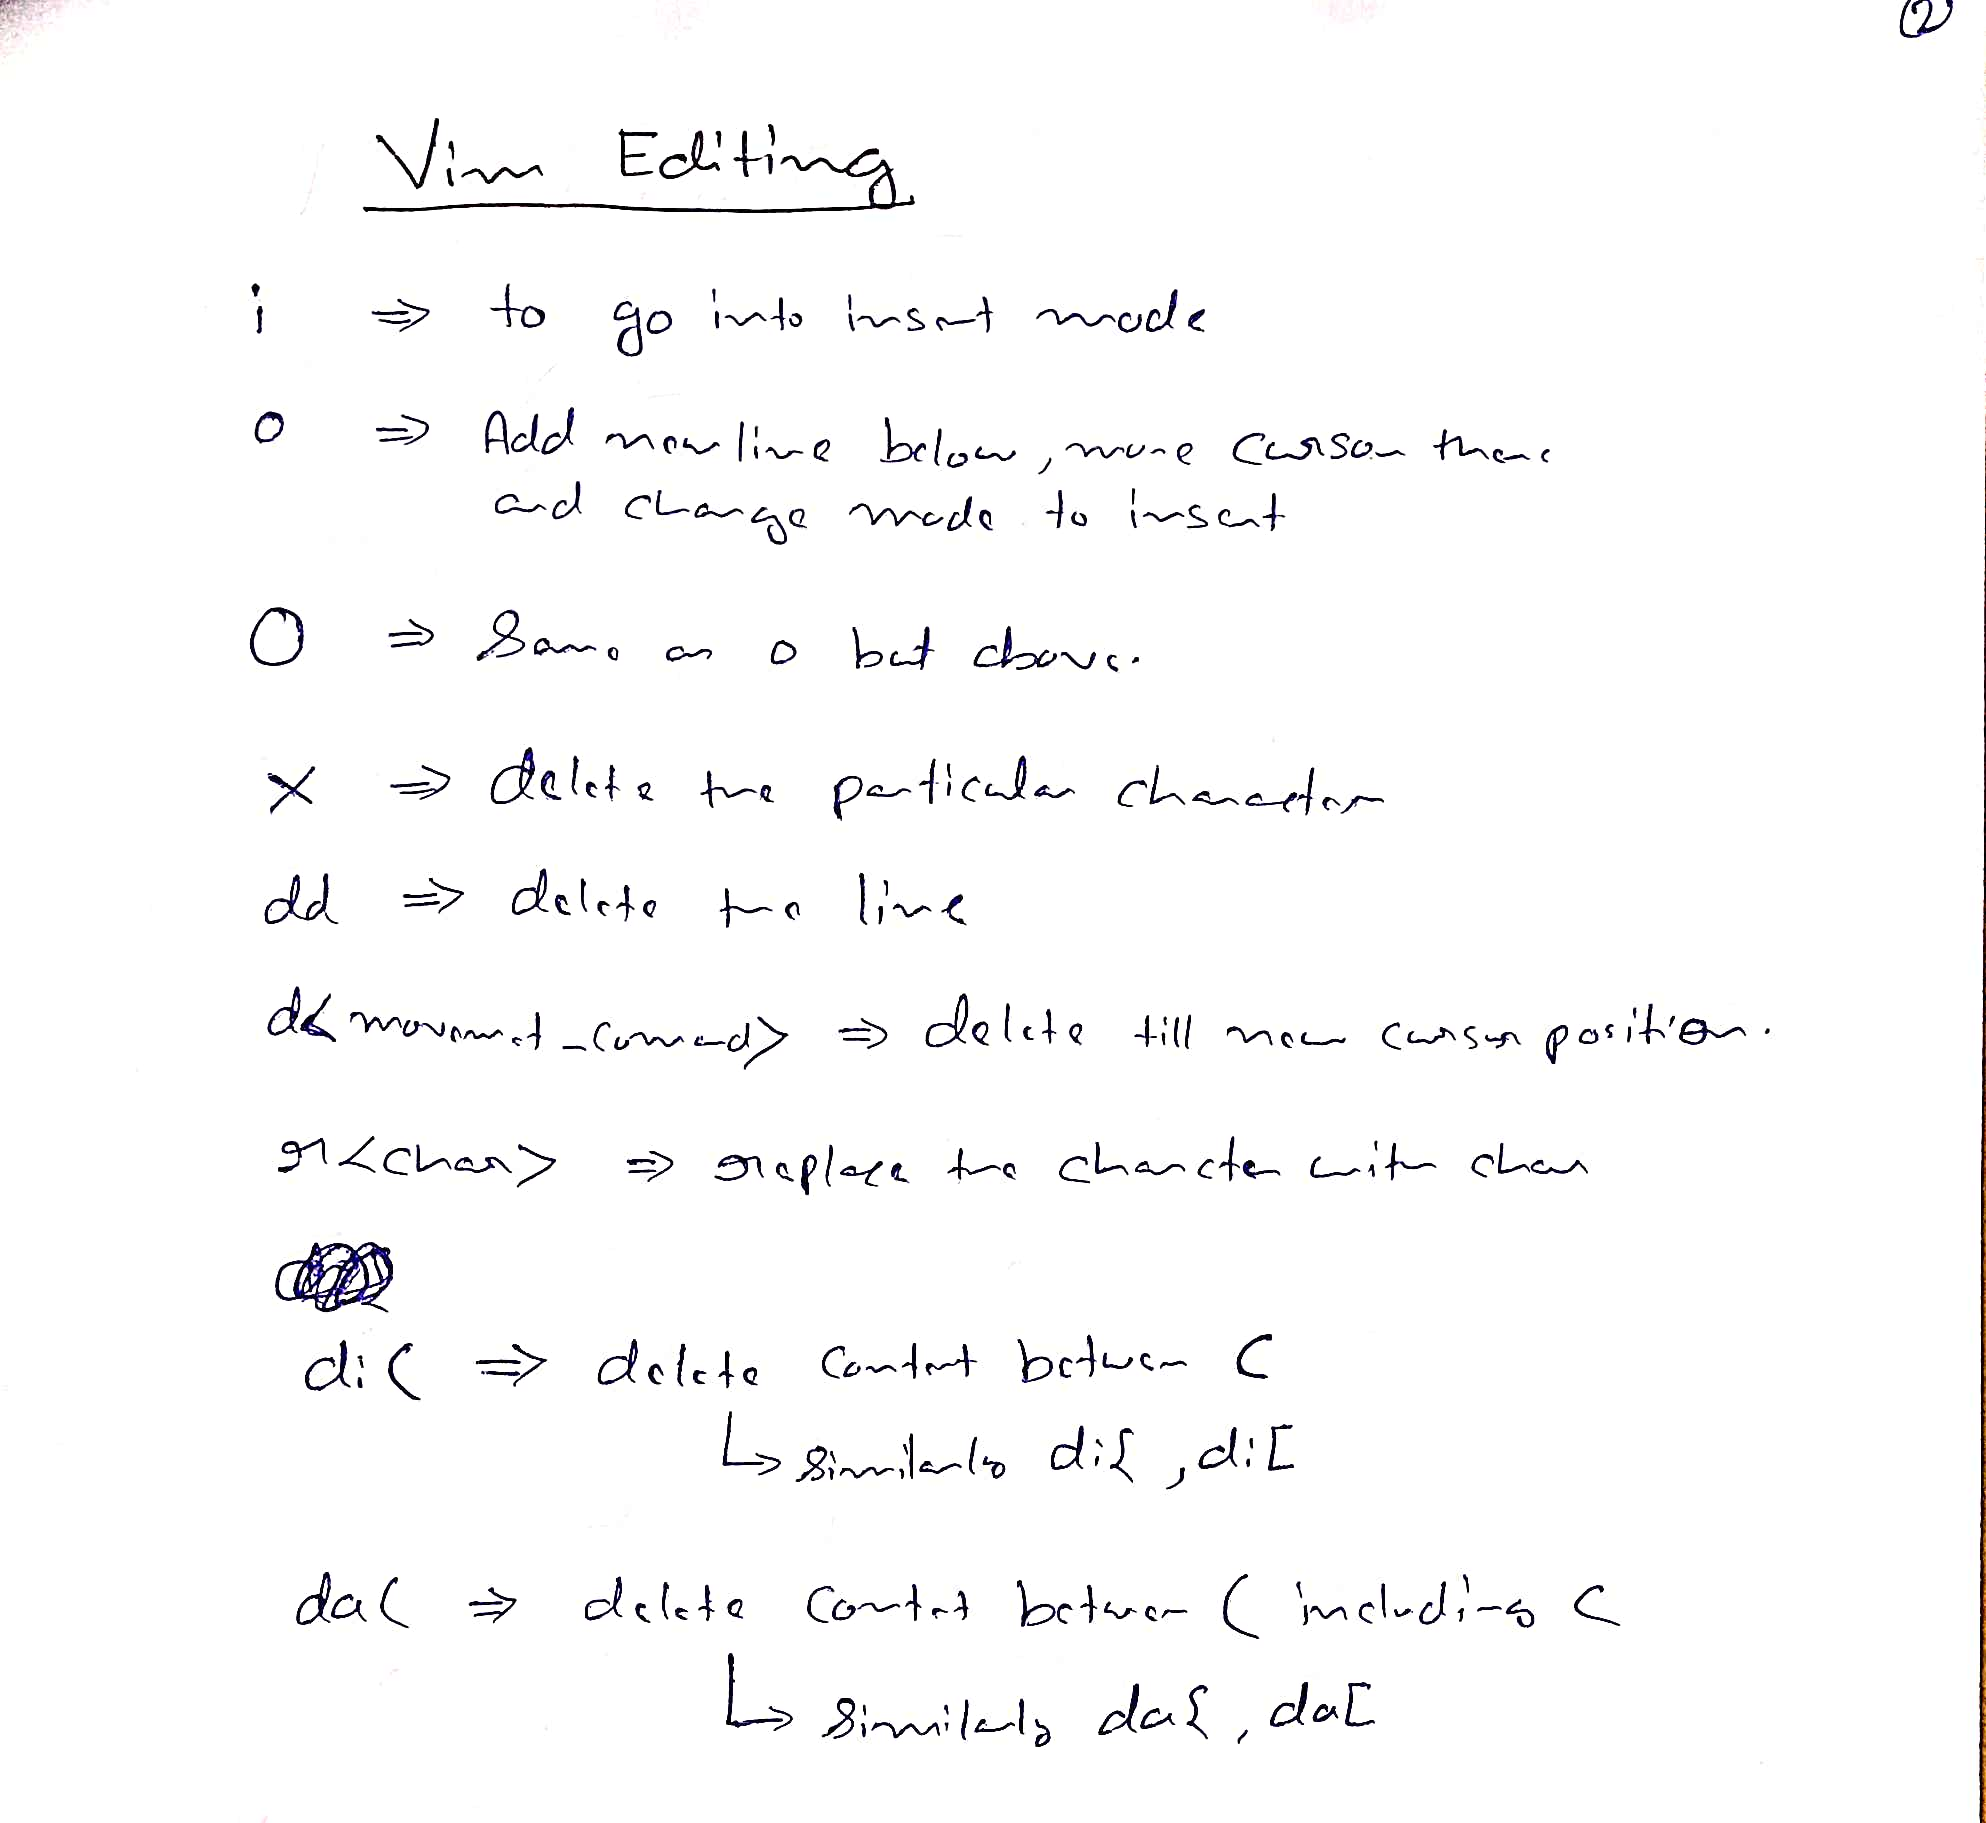 ②
Vim Editing
i ⇒ to go into insert mode
o ⇒ Add new line below, move cursor there
and change mode to insert
O ⇒ Same as o but above.
x ⇒ delete the particular character
dd ⇒ delete the line
d<movement_command> ⇒ delete till new cursor position.
r<char> ⇒ replace the character with char
di( ⇒ delete content between (
↳ similarly di{, di[
da( ⇒ delete content between ( including (
↳ similarly da{, da[